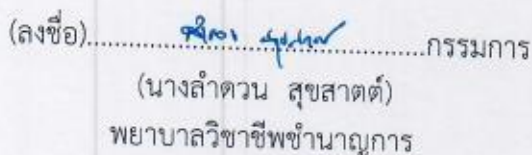 (ลงชื่อ)..........................................กรรมการ
(นางลำดวน สุขสาตต์)
พยาบาลวิชาชีพชำนาญการ